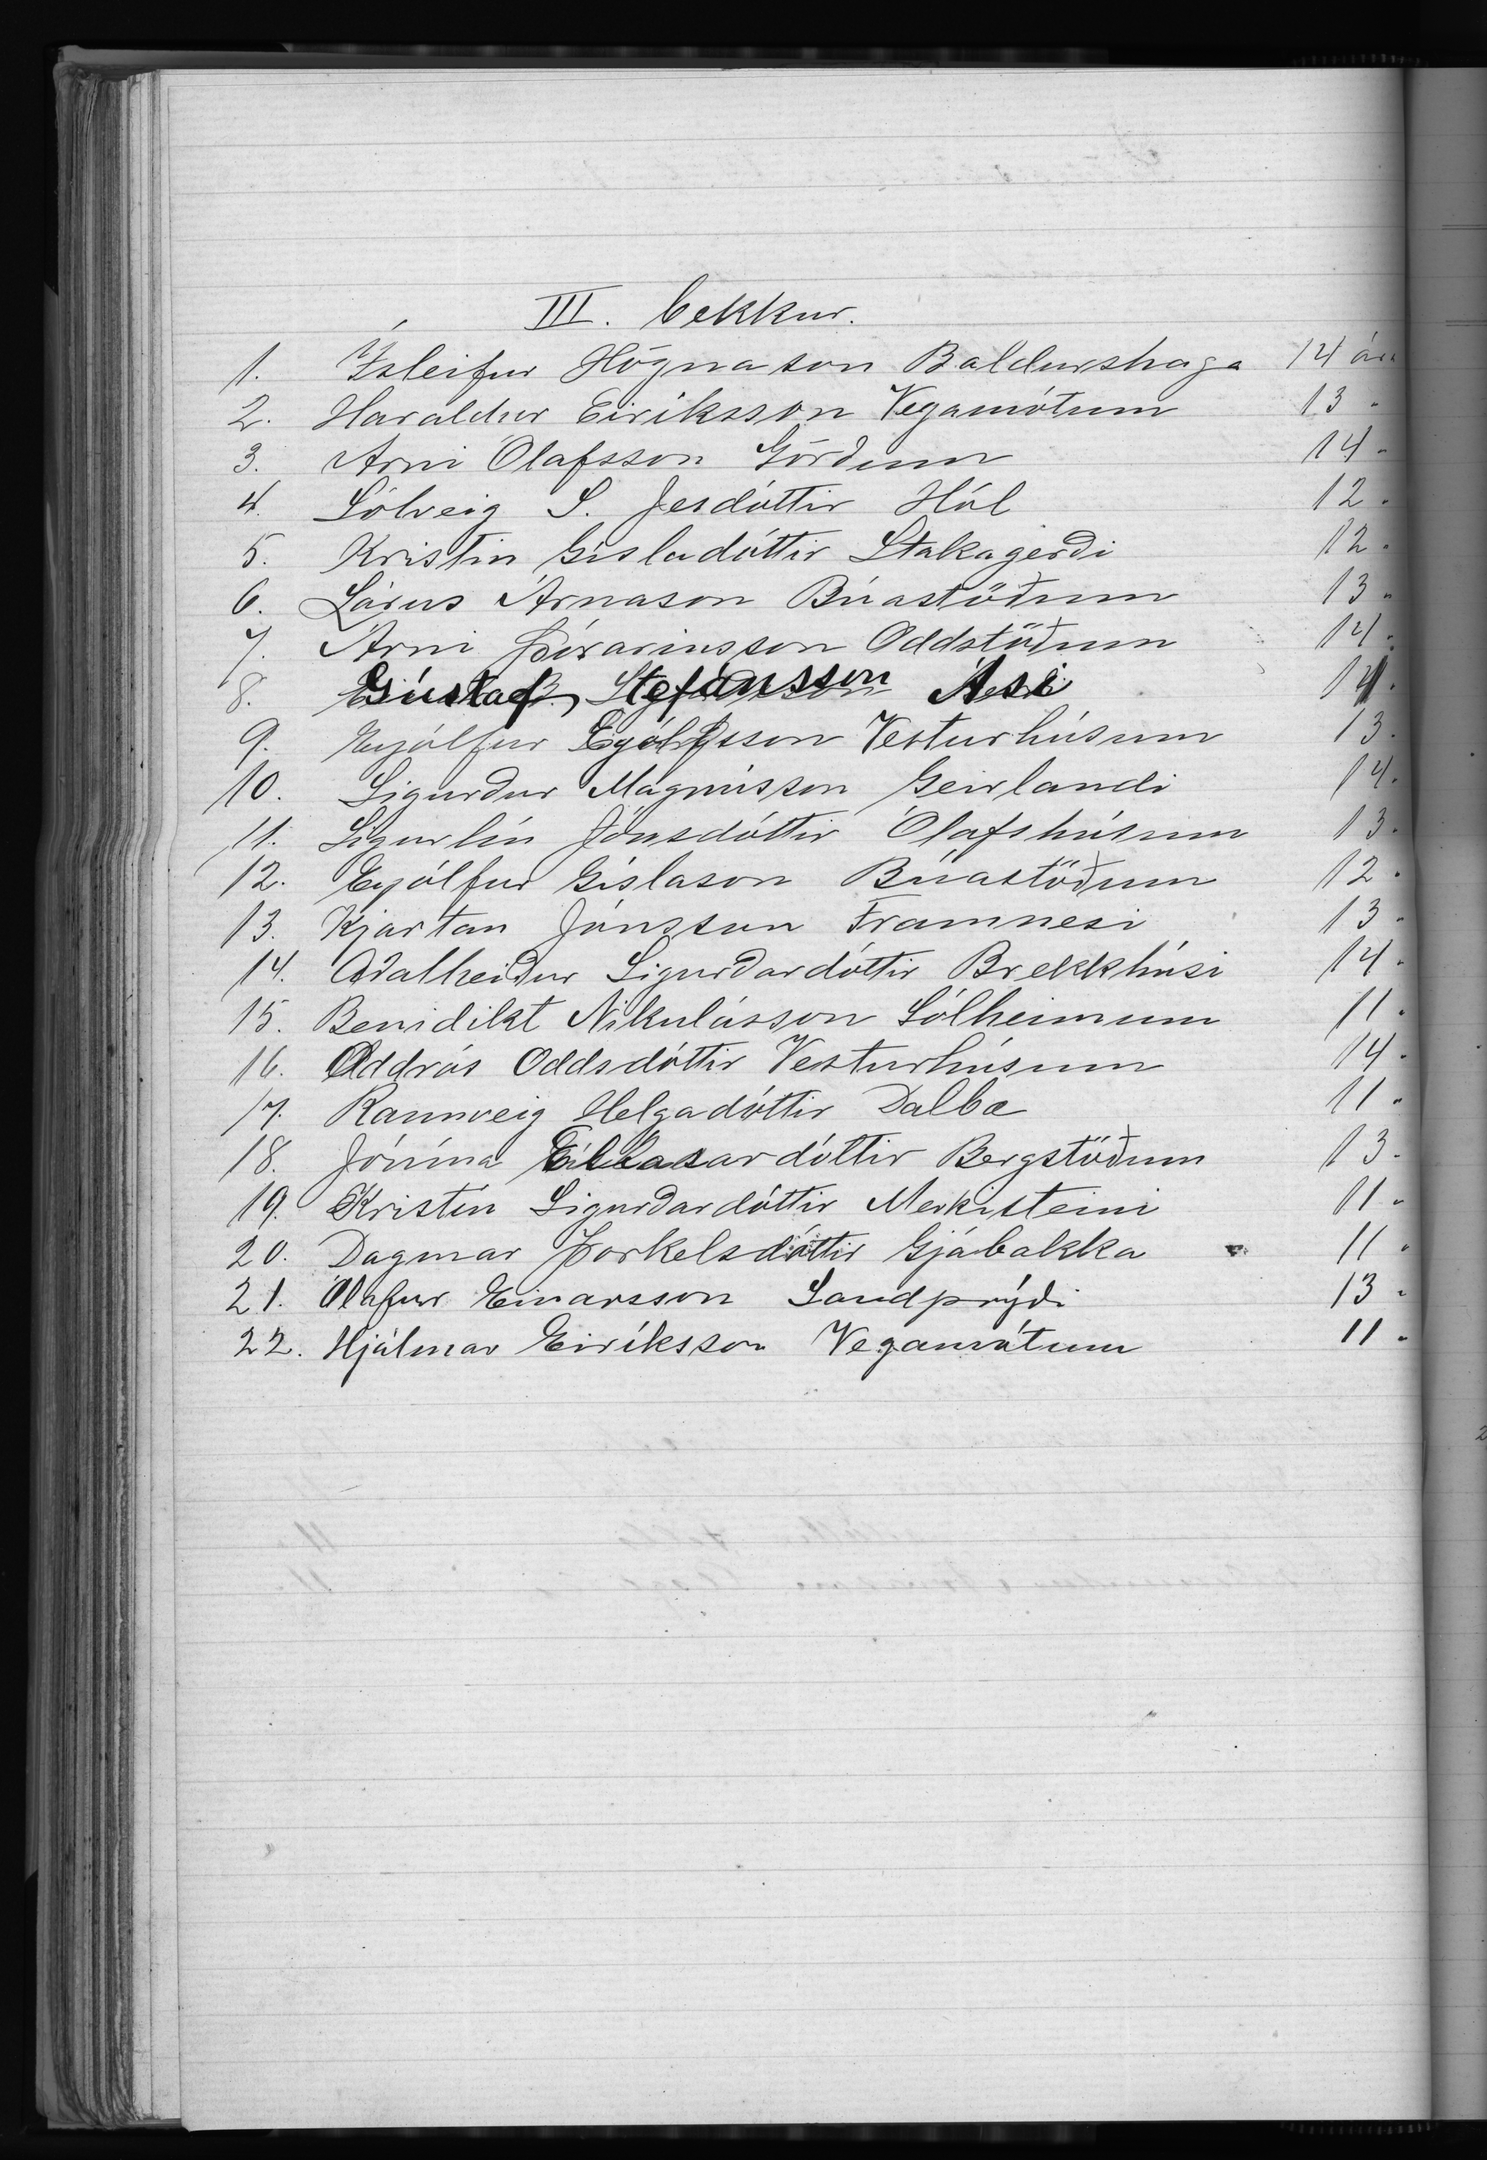 III. bekkur.
1. Ísleifur Högnason Baldurshaga 14 ára
2. Haraldur Eiríksson Vegamótum 13 -
3. Árni Ólafsson Görðum 14 -
4. Sólveig S. Jesdóttir Hól 12 -
5. Kristín Gísladóttir Stakagerði 12 -
6. Lárus Árnason Búastöðum 13 -
7. Árni Þórarinsson Oddstöðum 14 -
8. Gústaf, Stefánsson Ási 14 -
9. Eyjólfur Eyjólfsson Vesturhúsum 13 -
10. Sigurður Magnússon Geirlandi 14 -
11. Sigurlín Jónsdóttir Ólafshúsum 13 -
12. Eyjólfur Gíslason Búastöðum 12 -
13. Kjartan Jónsson Framnesi 13 -
14. Aðalheiður Sigurðardóttir Brekkhúsi 14 -
15. Benidikt Nikulásson Sólheimum 11 -
16. Oddrós Oddsdóttir Vesturhúsum 14 -
17. Rannveig Helgadóttir Dalbæ 11 -
18. Jónína Elíasardóttir Bergstöðum 13 -
19. Kristín Sigurðardóttir Merkisteini 11 -
20. Dagmar Þorkelsdóttir Gjábakka 11 -
21. Ólafur Einarsson Sandprýði 13 -
22. Hjálmar Eiríksson Vegamótum 11 -